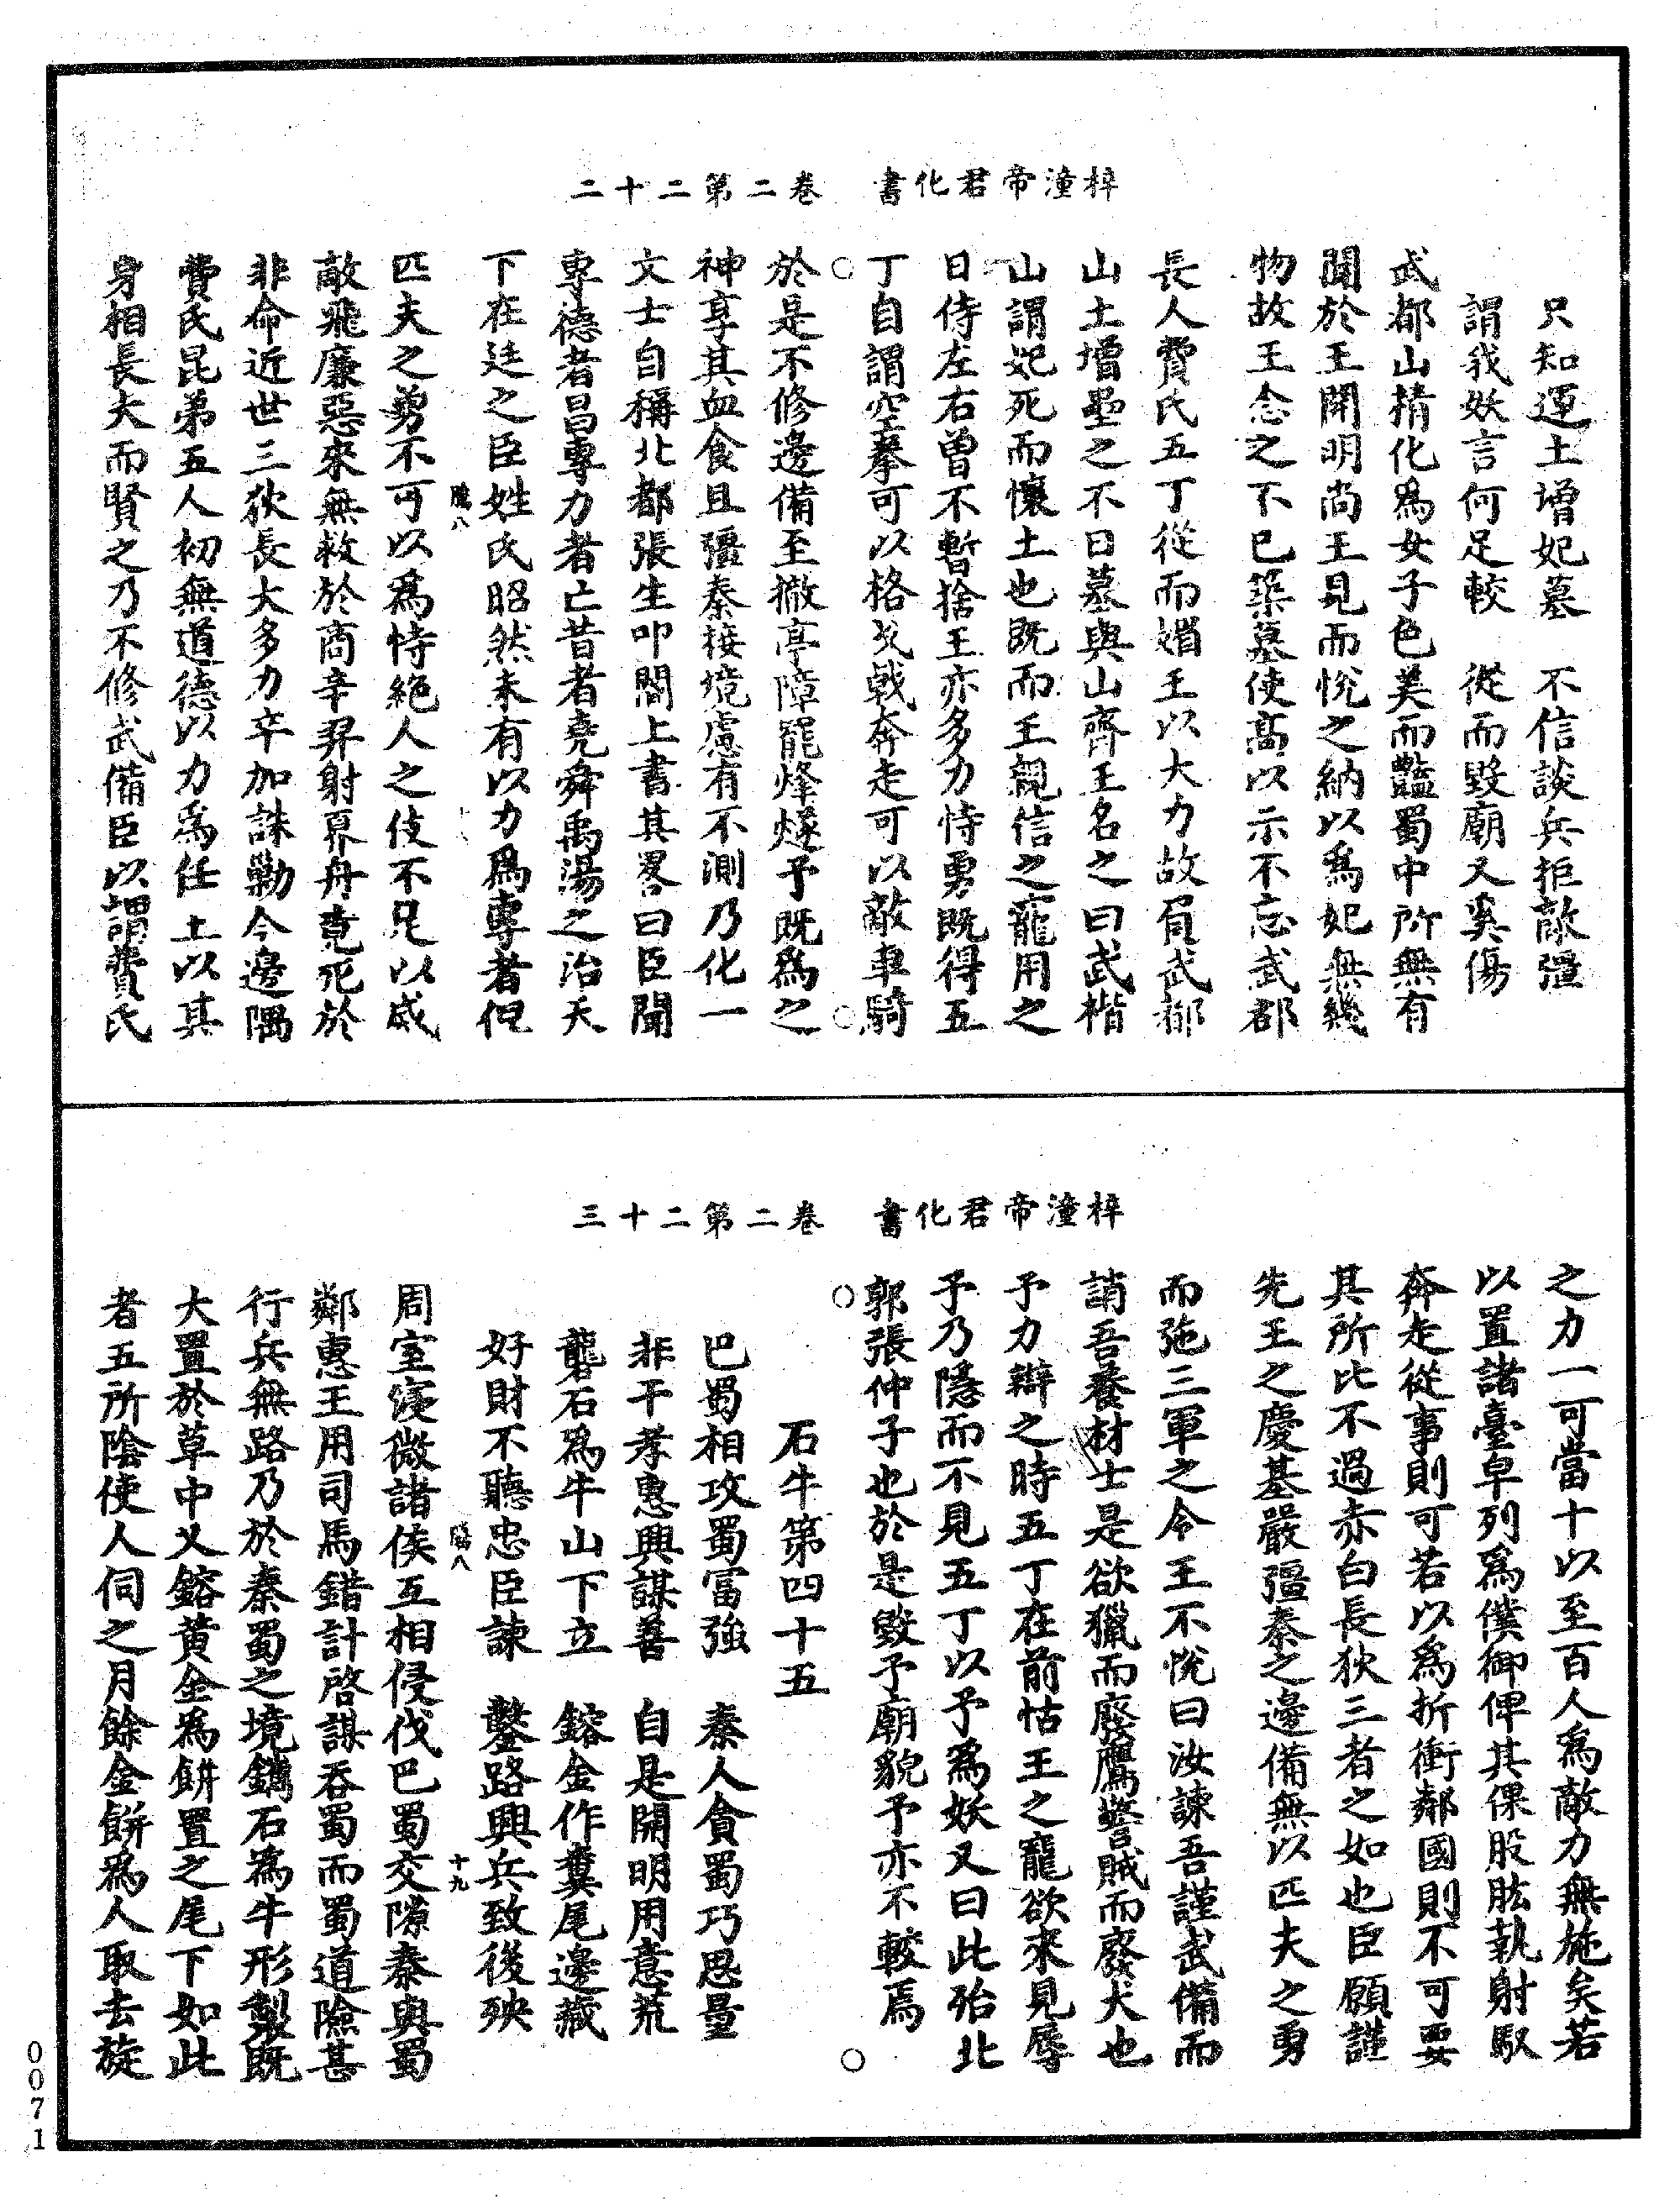 梓潼帝君化書　卷二第二十二
只知運土增妃墓　不信談兵拒敵彊
謂我妖言何足較　從而毀廟又奚傷
武都山精化爲女子色美而豔蜀中所無有
聞於王開明尚王見而悅之納以爲妃無幾
物故王念之不已築墓使高以示不忘武都
長人費氏五丁從而媚王以大力故負武都
山土增壘之不日墓與山齊王名之曰武檐
山謂妃死而懷土也既而王親信之寵用之
日侍左右曾不暫捨王亦多力恃勇既得五
丁自謂空拳可以格戈戟奔走可以敵車騎
於是不修邊備至撤亭障罷烽燧予既爲之
神享其血食且彊秦接境慮有不測乃化一
文士自稱北都張生叩閽上書其畧曰臣聞
專德者昌專力者亡昔者堯舜禹湯之治天
下在廷之臣姓氏昭然未有以力爲專者但
騰八
十八
匹夫之勇不可以爲恃絕人之伎不足以威
敵飛廉惡來無救於商辛羿射奡舟竟死於
非命近世三狄長大多力卒加誅勦今邊隅
費氏昆弟五人初無道德以力爲任土以其
身相長大而賢之乃不修武備臣以謂費氏
梓潼帝君化書　卷二第二十三
之力一可當十以至百人爲敵力無施矣若
以置諸臺皁列爲僕御俾其倮股肱執射馭
奔走從事則可若以爲折衝鄰國則不可要
其所比不過赤白長狄三者之如也臣願謹
先王之慶基嚴彊秦之邊備無以匹夫之勇
而弛三軍之令王不悅曰汝諫吾謹武備而
誚吾養材士是欲獵而廢鷹警賊而廢犬也
予力辯之時五丁在前怙王之寵欲來見辱
予乃隱而不見五丁以予爲妖又曰此殆北
郭張仲子也於是毀予廟貌予亦不較焉
石牛第四十五
巴蜀相攻蜀富強　秦人貪蜀巧思量
非干孝惠興謀善　自是開明用意荒
礱石爲牛山下立　鎔金作糞尾邊藏
好財不聽忠臣諫　鑿路興兵致後殃
騰八
十九
周室寖微諸侯互相侵伐巴蜀交隙秦與蜀
鄰惠王用司馬錯計啓謀吞蜀而蜀道險甚
行兵無路乃於秦蜀之境鐫石爲牛形製既
大置於草中乂鎔黃金爲餅置之尾下如此
者五所陰使人伺之月餘金餅爲人取去旋
0071